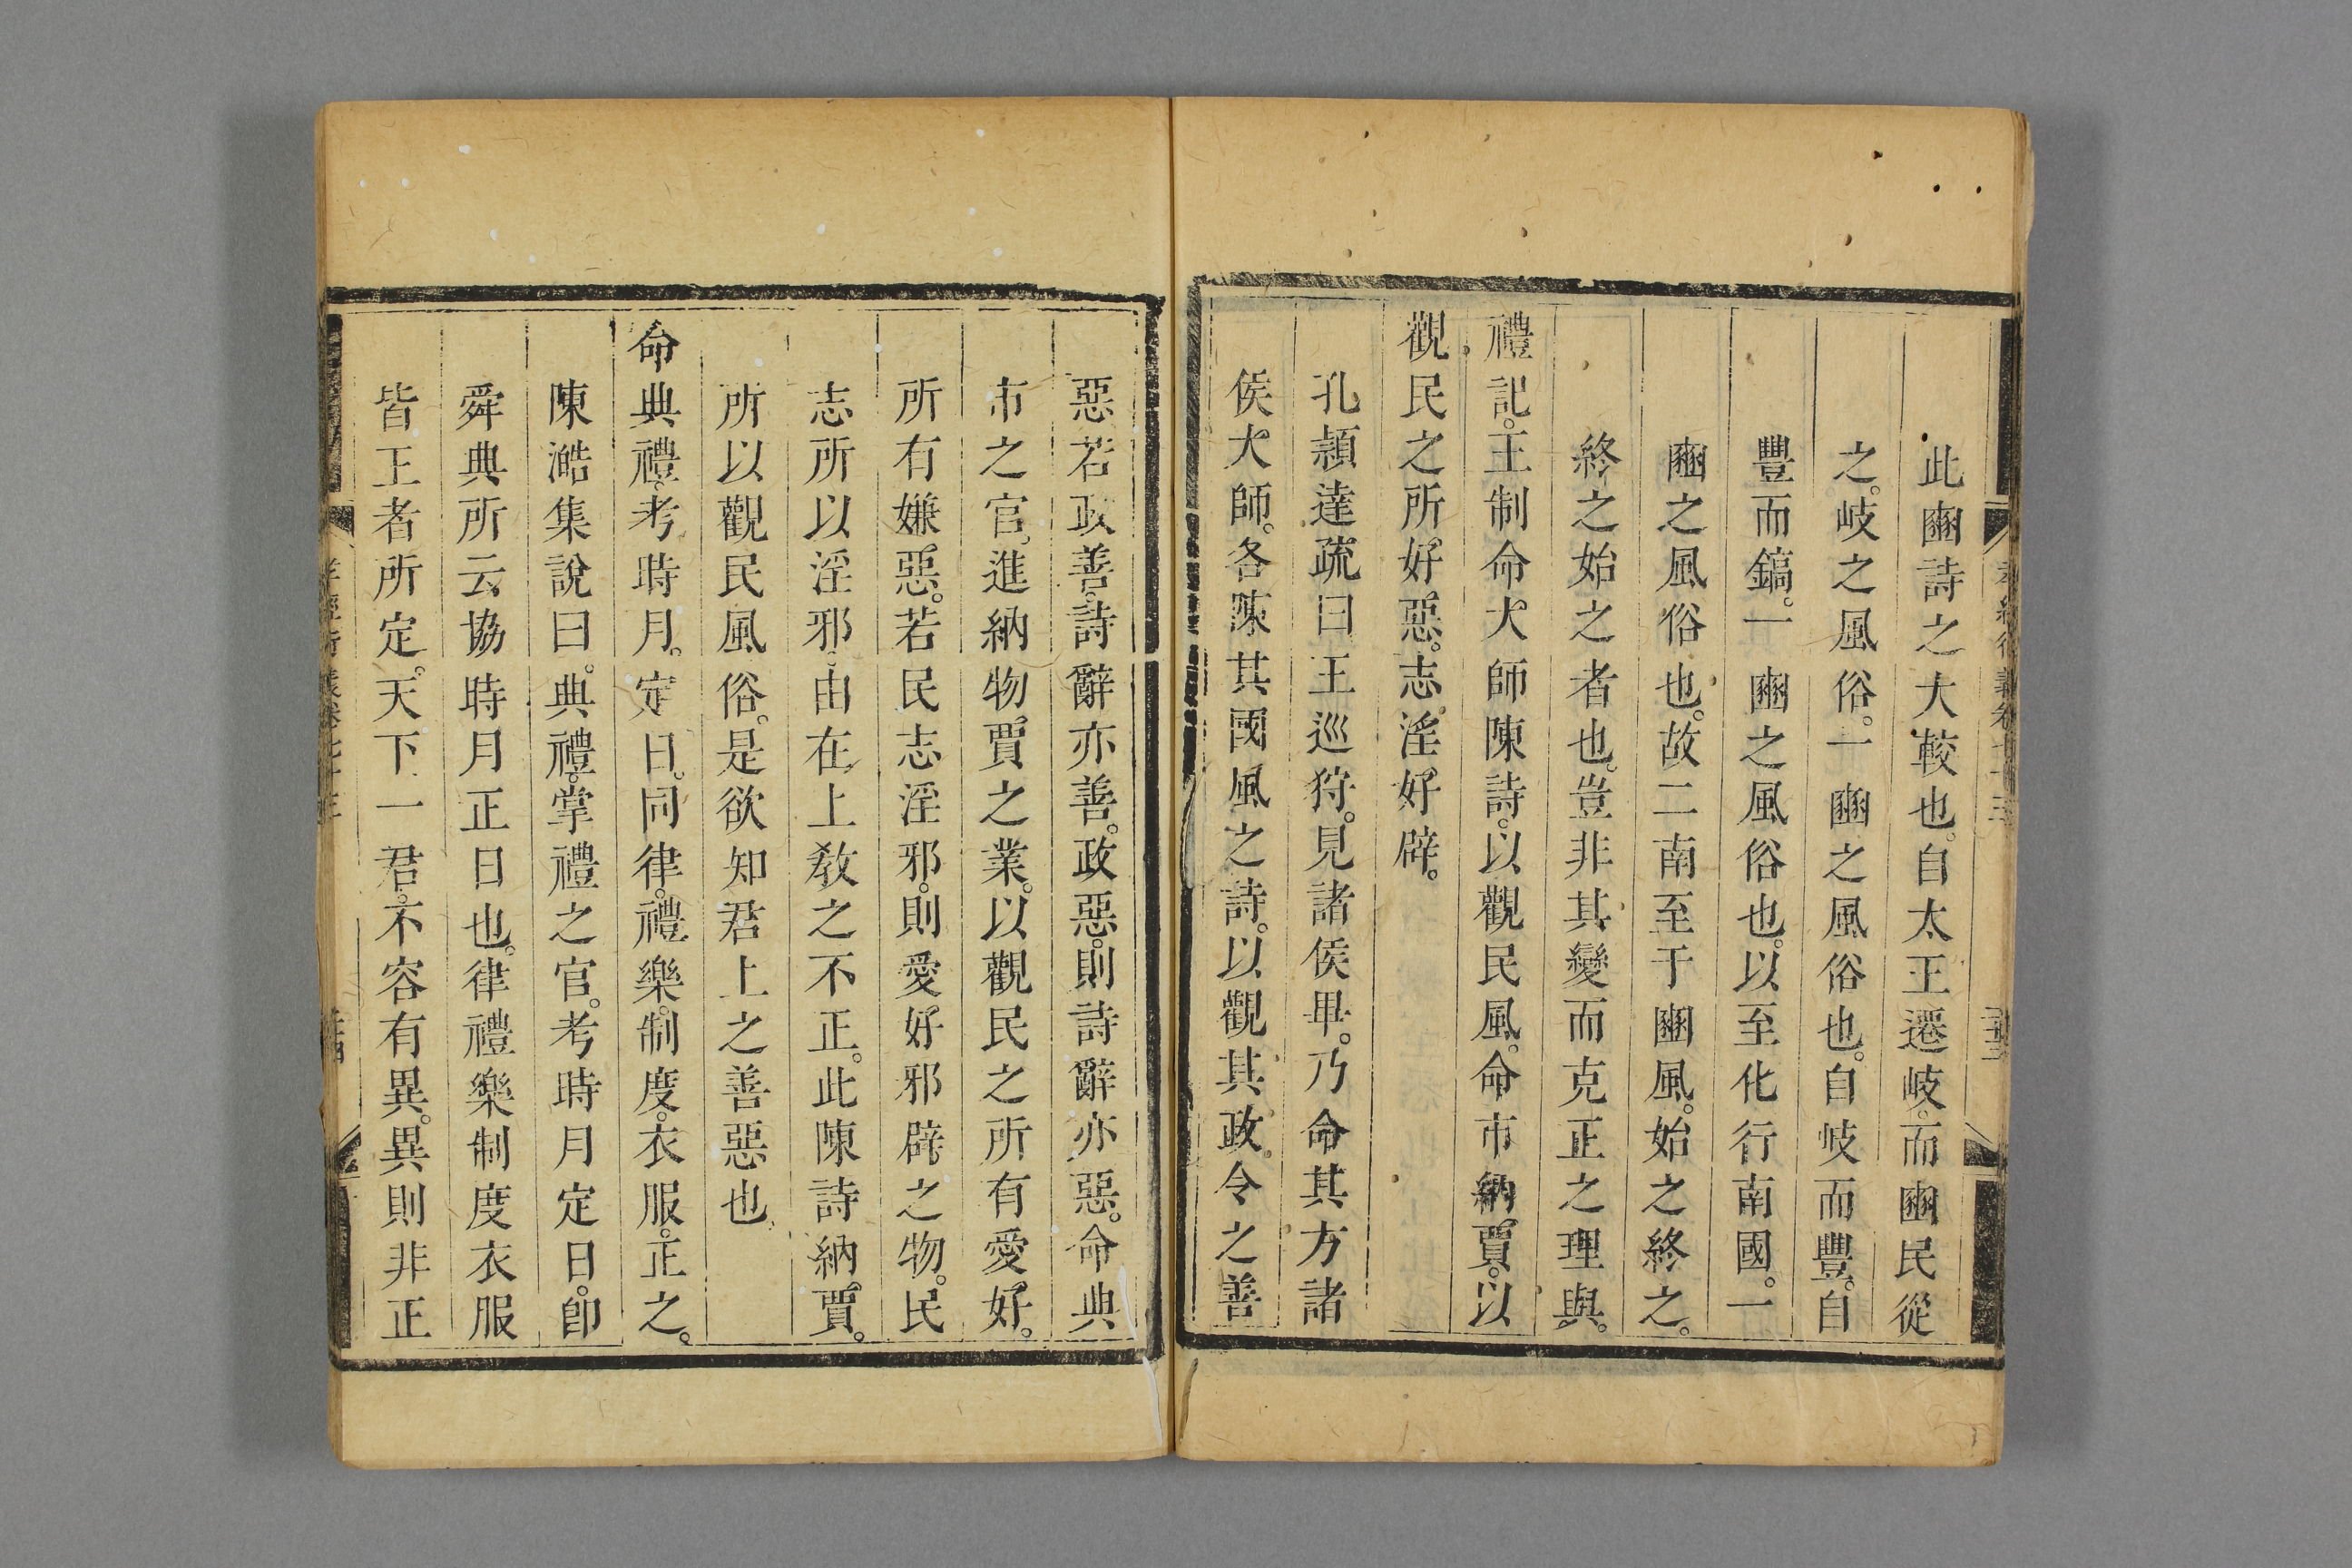 此豳詩之大較也。自太王遷岐。而豳民從
之。岐之風俗。一豳之風俗也。自岐而豐。自
豐而鎬。一豳之風俗也。以至化行南國。一
豳之風俗也。故二南至于豳風。始之終之。
終之始之者也。豈非其變而克正之理與。
禮記。王制命大師陳詩。以觀民風。命市納賈。以
觀民之所好惡。志淫好辟。
孔頴達疏曰王巡狩。見諸侯畢。乃命其方諸
侯大師。各陳其國風之詩。以觀其政令之善
惡若政善。詩辭亦善。政惡。則詩辭亦惡。命典
市之官。進納物賈之業。以觀民之所有愛好。
所有嫌惡。若民志淫邪。則愛好邪辟之物。民
志所以淫邪。由在上教之不正。此陳詩納賈。
所以觀民風俗。是欲知君上之善惡也。
命典禮。考時月。定日。同律。禮樂。制度。衣服。正之。
陳澔集說曰。典禮。掌禮之官。考時月定日。卽
舜典所云協時月正日也。律禮樂制度衣服
皆王者所定。天下一君。不容有異。異則非正